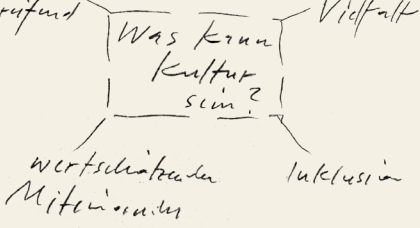 Vielfalt
Was kann
Kultur
sein?
wertschätzendes
Miteinander
Inklusion